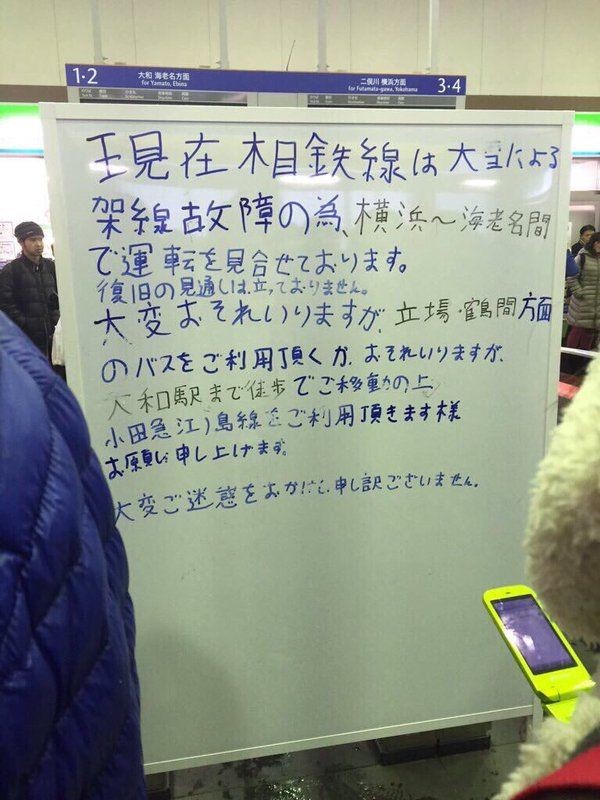 1・2
大和 海老名方面
for Yamato, Ebina
二俣川 横浜方面
for Futamata-gawa, Yokohama
3・4
現在相鉄線は大雪による
架線故障の為、横浜～海老名間
で運転を見合せております。
復旧の見通しは立っておりません。
大変おそれいりますが、立場・鶴間方面
のバスをご利用頂くか、おそれいりますが、
大和駅まで徒歩でご移動の上
小田急江ノ島線をご利用頂きます様
お願い申し上げます。
大変ご迷惑をおかけし申し訳ございません。